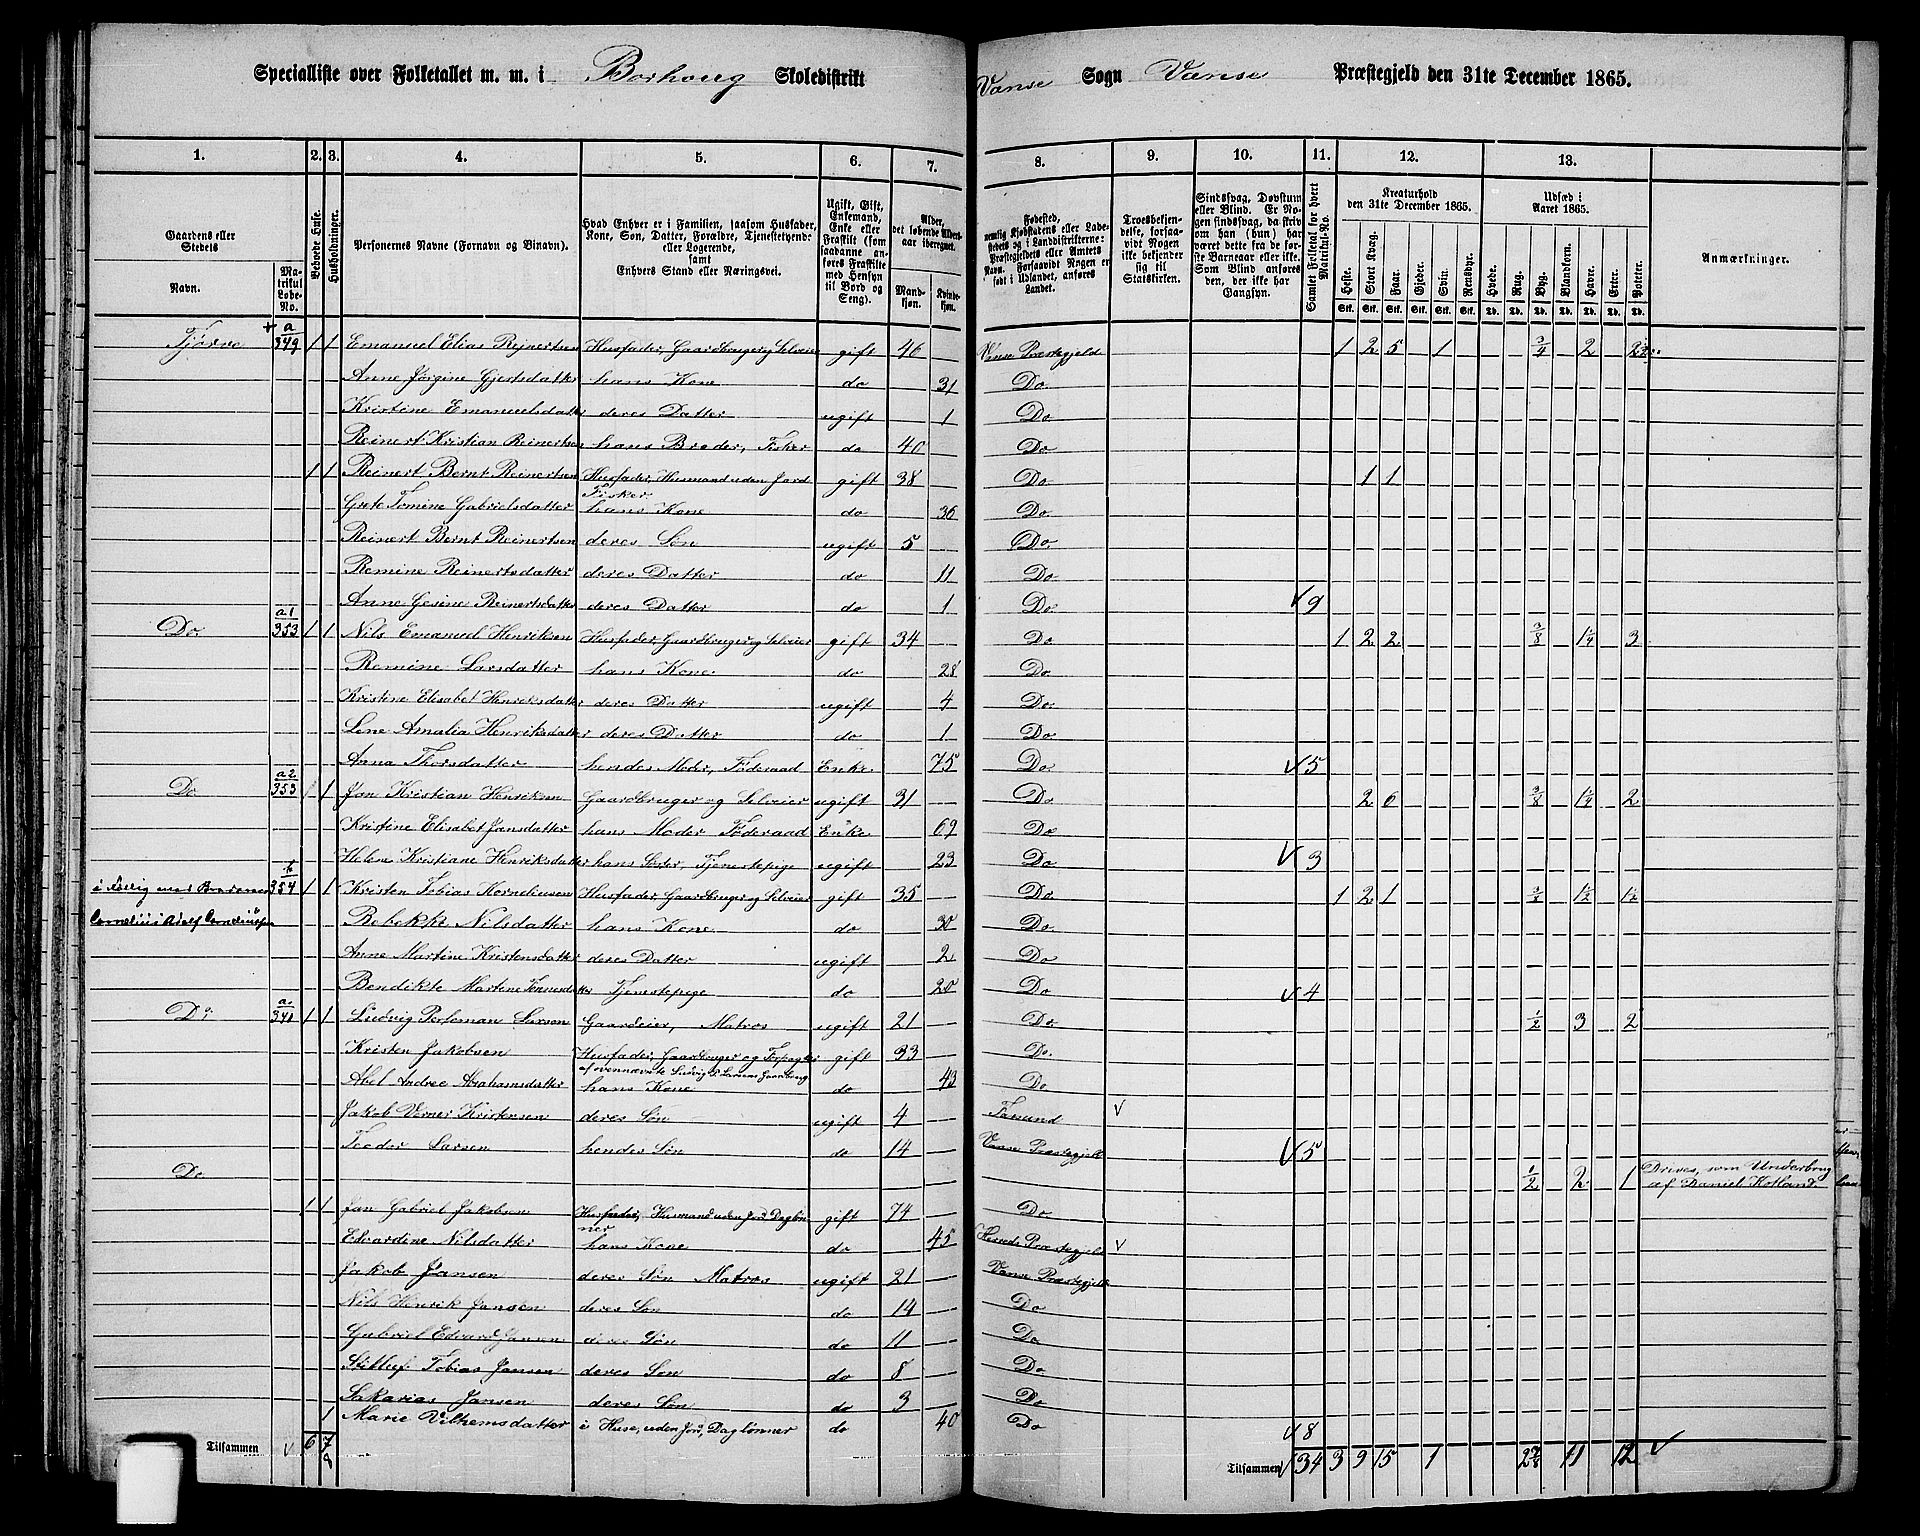 Specialliste over Folketallet m. m. i Borhoug Skoledistrikt Vanse Sogn Vanse Præstegjeld den 31te December 1865.
1. 2. 3. 4. 5. 6. 7. 8. 9. 10. 11. 12. 13.
Gaardens eller Stedets
Navn.
Matrikul Løbe-No.
Beboede Huse.
Husholdninger.
Personernes Navne (Fornavn og Binavn).
Hvad Enhver er i Familien, saasom Husfader, Kone, Søn, Datter, Forældre, Tjenestetyende eller Logerende, samt Enhvers Stand eller Næringsvei.
Ugift, Gift, Enkemand, Enke eller Fraskilt (som saadanne anføres Fraskilte med Hensyn til Bord og Seng).
Alder, det løbende Aldersaar iberegnet.
Mandkjøn. Kvindekjøn.
Fødested, nemlig Kjøbstadens eller Ladestedets og i Landdistrikterne: Præstegjeldets eller Amtets Navn. Forsaavidt Nogen er født i Udlandet, anføres Landet.
Troesbekjendelse, forsaavidt Nogen ikke bekjender sig til Statskirken.
Sindssvag, Døvstum eller Blind. Er Nogen sindssvag, da skriv om han (hun) har været dette fra de første Barneaar eller ikke. Som Blind anføres den, der ikke har Gangsyn.
Samlet Folketal for hvert Matrikul-No.
Kreaturhold den 31te December 1865.
Heste. Stort Kvæg. Faar. Gjeder. Svin. Rensdyr.
Udsæd i Aaret 1865.
Hvede. Rug. Byg. Blandkorn. Havre. Erter. Poteter.
Anmærkninger.
Tjørve a 349 1 1 Emanuel Elias Reinertsen Husfader, Gaardbruger og Selveier gift 46 Vanse Præstegjeld 1 2 5 1 3/4 2
Anne Jørgine Gjertsdatter hans Kone do 31 Do
Kristine Emanuelsdatter deres Datter ugift 1 Do
Reinert Kristian Reinertsen hans Broder, Fisker do 40 Do
1 1 Reinert Bernt Reinertsen Husfader, Husmand uden Jord Fisker gift 38 Do 1 1
Grete Tomine Gabrielsdatter hans Kone do 36 Do
Reinert Bernt Reinertsen deres Søn ugift 5 Do
Remine Reinertsdatter deres Datter do 11 Do
Anne Gesine Reinertsdatter deres Datter do 1 Do 9
Do a1 353 1 1 Nils Emanuel Henriksen Husfader, Gaardbruger og Selveier gift 34 Do 1 2 2 3/8 1 1/4 3
Remine Larsdatter hans Kone do 28 Do
Kristine Elisabet Henriksdatter deres Datter ugift 4 Do
Lene Amalia Henriksdatter deres Datter do 1 Do
Anna Thorsdatter hendes Moder, Føderaad Enke 75 Do 5
Do a2 353 1 1 Jan Kristian Henriksen Gaardbruger og Selveier ugift 31 Do 2 6 3/8 1 1/4 2
Kristine Elisabet Jansdatter hans Moder Føderaad Enke 69 Do
Helene Kristiane Henriksdatter hans Søster, Tjenestepige ugift 23 Do 3
i Fællig med Broderen 354 1 1 Kristen Tobias Korneliusen Husfader, Gaardbruger og Selveier gift 35 Do 1 2 1 1 1/2 1 1/2
Cornelius Adolf Corneliussen Rebekke Nilsdatter hans Kone do 30 Do
Anne Martine Kristensdatter deres Datter ugift 2 Do
Bendikte Martine Tønnesdatter Tjenestepige do 20 Do 4
Do a 340 1 1 Ludvig Perleman Larsen Gaardeier, Matros ugift 21 Do 1/2 3 2
Kristen Jakobsen Husfader, Gaardbruger og Forpagter af ovennævnte Ludvig P. Larsens Gaardbrug gift 33 Do
Abel Andree Abrahamsdatter hans Kone do 43 Do
Jakob Verner Kristensen deres Søn ugift 4 Farsund
Teodor Larsen hendes Søn do 14 Vanse Præstegjeld 5
Do 1/2 2 1 Drives, som Underbrug af Daniel Kotland.
1 1 Jan Gabriel Jakobsen Husfader, Husmand uden Jord, Daglønner gift 74 Do
Edvardine Nilsdatter hans Kone do 45 Herreds Præstegjeld
Jakob Jansen deres Søn Matros ugift 21 Vanse Præstegjeld
Nils Henrik Jansen deres Søn do 14 Do
Gabriel Edvard Jansen deres Søn do 11 Do
Tobias Jansen deres Søn do 8 Do
Sakarias Jansen deres Søn do 3 Do
1 Marie Vilhemsdatter i Huse, uden Jord, Daglønner do 40 Do 8
Tilsammen 6 7 8 Tilsammen 34 3 9 15 1 2 7/8 11 12